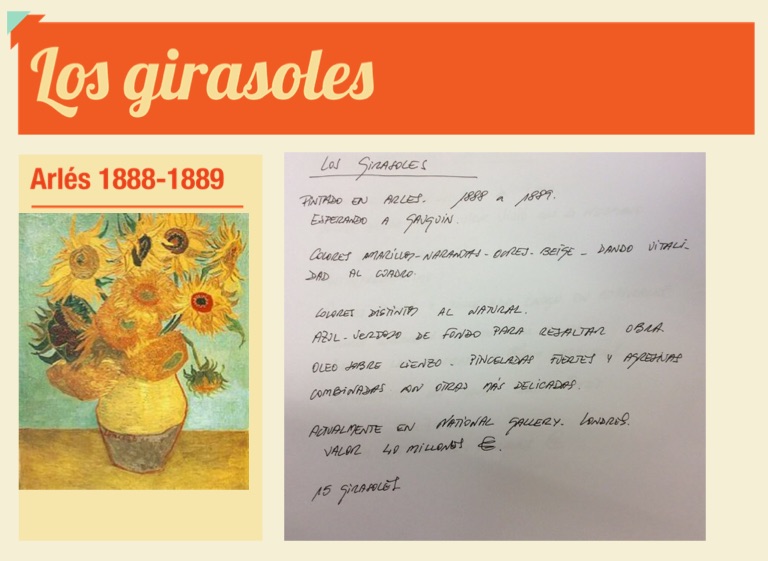 Los girasoles
Arlés 1888-1889
LOS GIRASOLES
PINTADO EN ARLES. 1888 a 1889.
ESPERANDO A GAUGUIN.
COLORES AMARILLOS-NARANJAS-OCRES-BEIGE - DANDO VITALI-
DAD AL CUADRO.
COLORES DISTINTOS AL NATURAL.
AZUL-VERDOSO DE FONDO PARA RESALTAR OBRA
OLEO SOBRE LIENZO - PINCELADAS FUERTES Y AGRESIVAS
COMBINADAS CON OTRAS MÁS DELICADAS.
ACTUALMENTE EN NATIONAL GALLERY. LONDRES.
VALOR 40 MILLONES €.
15 GIRASOLES